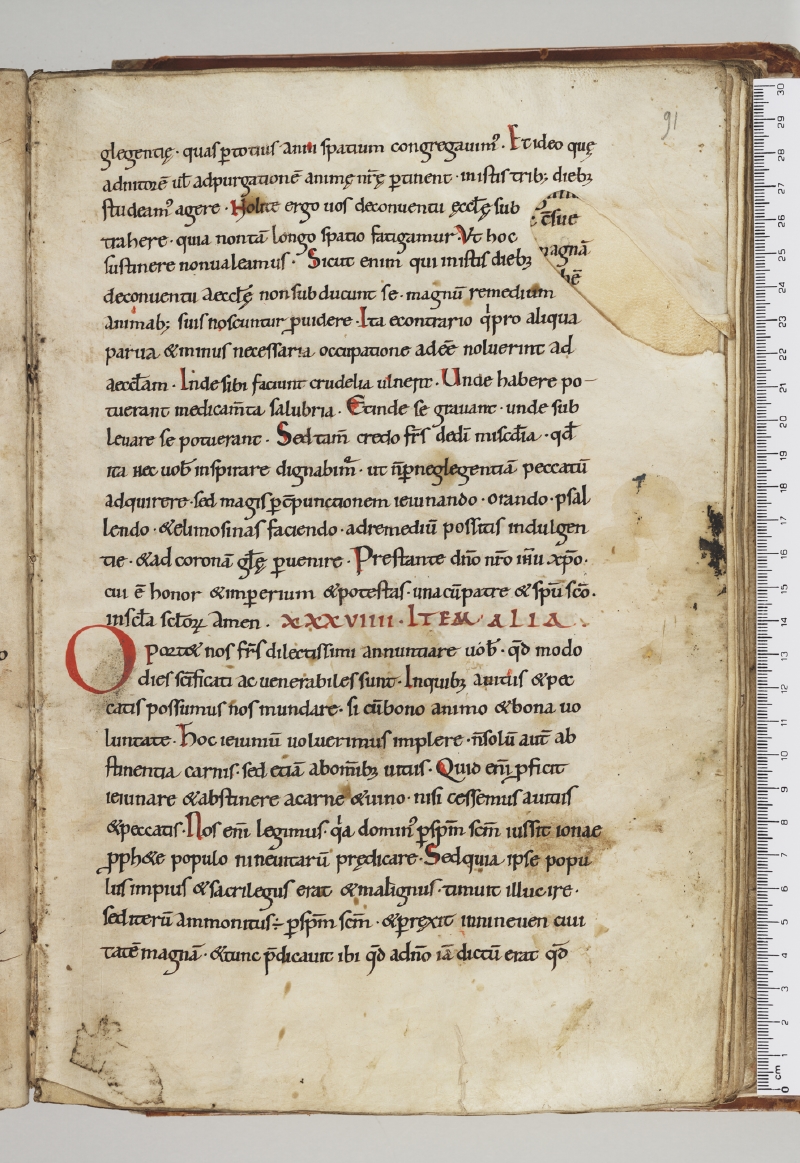 91
glegentię · quas ꝑ totius anni spatium congregauimꝰ · Et ideo quę
ad nitorē ul̄ ad purgationē animę nr̄ę ꝑtinent · in istis trib; dieb;
studeamꝰ agere · Nolite ergo uos de conuentu ęccl̄ę sub
trahere · quia non tā longo spatio fatigamur · Vt hoc
sustinere non ualeamus · Sicut enim qui in istis dieb;
de conuentu aeccl̄ę non subducunt se · magnū remedium
animab; suis noscuntur ꝓuidere · Ita econtrario qͥ pro aliqua
parua & minus necessaria occupatione adeē noluerint ad
aeccl̄am · Inde sibi faciunt crudelia uulnera · Unde habere po-
tuerant medicam̄ta salubria · Et inde se grauant · unde sub
leuare se potuerant · Sed tam̄ credo fr̄s de dei miscd̄ia · qd̄
ita hec uob̄ inspirare dignabit̄ · ut n̄ ꝑ neglegentiā peccatū
adquirere · sed magis ꝑ cōpunctionem ieiunando · orando · psal
lendo · & elimosinas faciendo · ad remediū possitis indulgen
tie · & ad coronā gl̄ę ꝑuenire · Prestante dn̄o nr̄o ih̄u xp̄o ·
cui ē honor & imperium & potestas · una cū patre & sp̄u sc̄o ·
in scl̄a scl̄oꝝ Amen · XXXVIIII · ITEM ALIA ·
Oport& nos fr̄s dilectissimi annuntiare uob̄ · qd̄ modo
dies sc̄ificati ac uenerabiles sunt · In quib; a uitiis & pec
catis possumus nos mundare · si cū bono animo & bona uo
luntate · Hoc ieiuniū uoluerimus implere · n̄ solū aut̄ ab
stinentia carnis · sed etiā ab om̄ib; uitiis · Quid eni̅ ꝓficit
ieiunare & abstinere a carne & uino · nisi cessemus a uitiis
& peccatis · Nos eni̅ legimus · qͣa dominꝰ ꝑ sp̄m sc̄m iussit ionae
ꝓph&e populo nineuitarū prędicare · Sed quia ipse popu
lus impius & sacrilegus erat & malignus · timuit illuc ire ·
sed iterū ammonitus ÷ ꝑ sp̄m sc̄m · & ꝑrexit in nineuen ciui
tatē magnā · & tunc p̄dicauit ibi qd̄ a dn̄o iā dictū erat qd̄